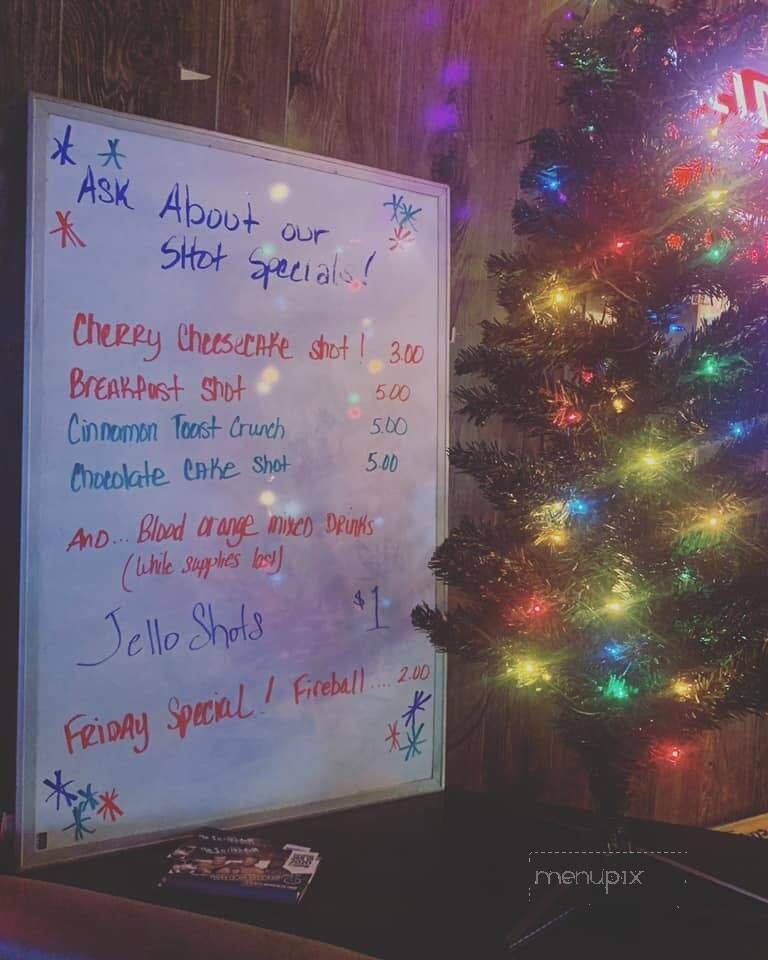 ASK About our
SHot Specials!
CHERRY CHeeseCAKe shot! 3.00
BReAKFast SHot 5.00
Cinnamon Toast Crunch 5.00
Chocolate CAKe SHot 5.00
AND... Blood orange mixed DRiNKs
(While supplies last)
Jello Shots $1
FRiDAY Special! Fireball.... 2.00
menupix